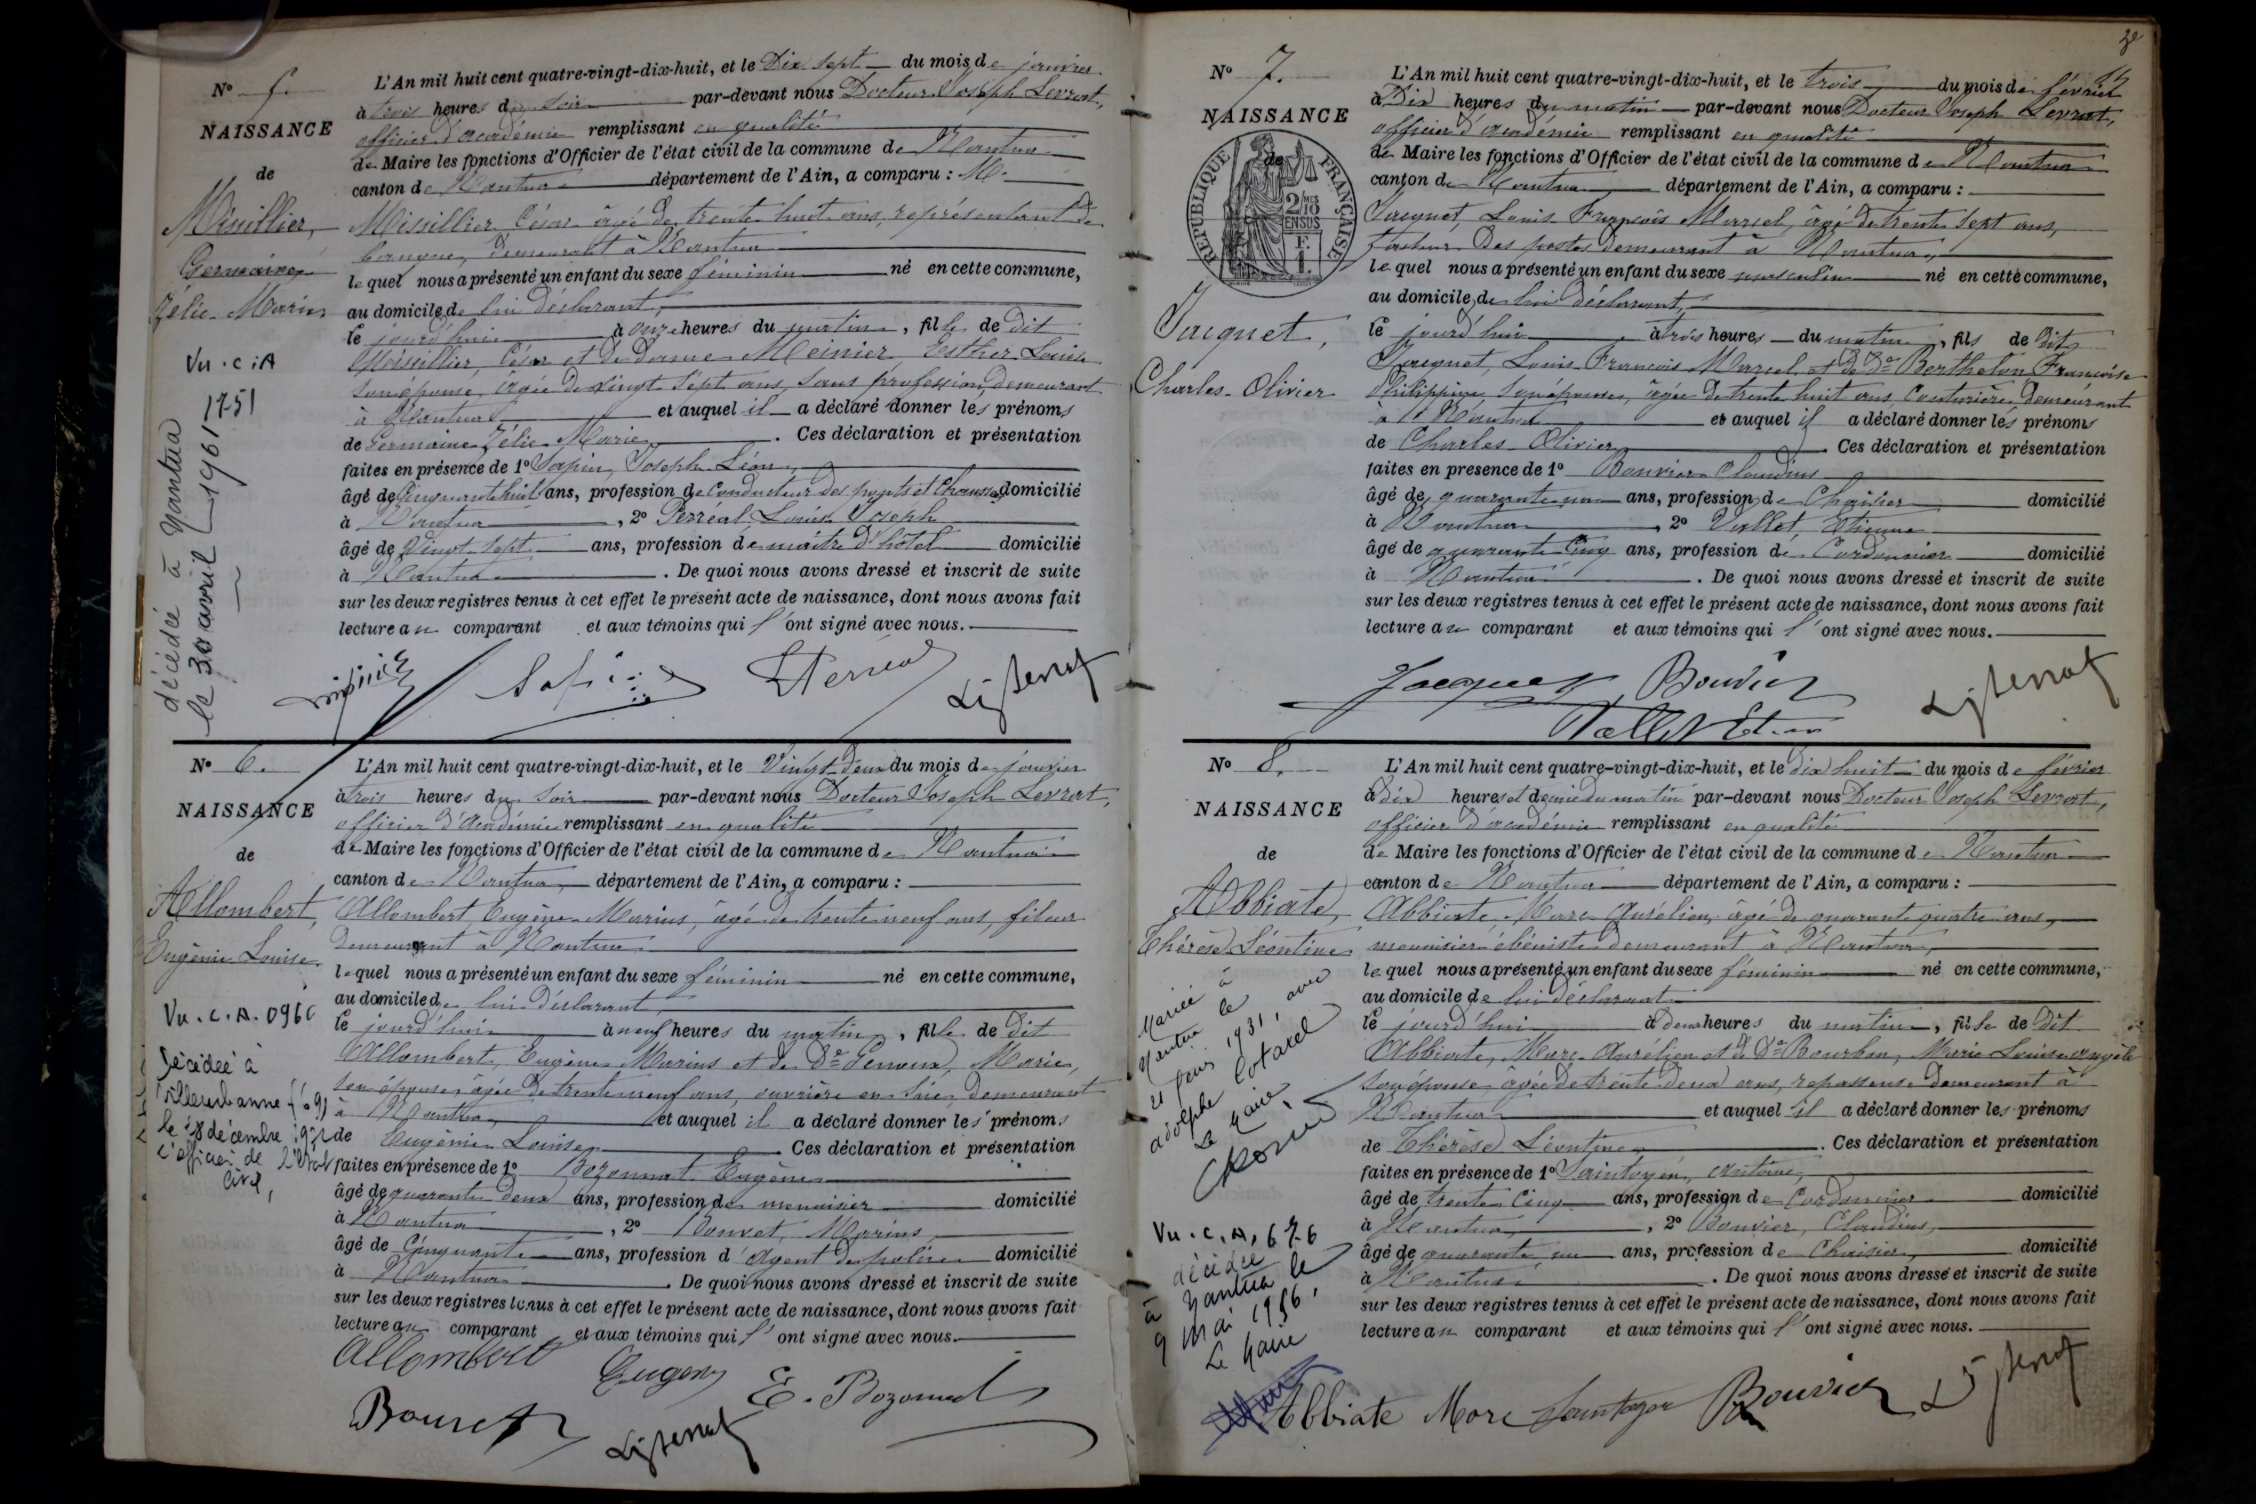 N° 5.
NAISSANCE
de
Missillier,
Germaine
Zélie Marie
Vu. C. A
1751
décédée à Nantua
le 30 avril 1961
L'An mil huit cent quatre-vingt-dix-huit, et le Dix sept du mois de janvier
à trois heures du soir par-devant nous Docteur Joseph Levrat,
officier d'académie remplissant en qualité
de Maire les fonctions d'Officier de l'état civil de la commune de Nantua
canton de Nantua département de l'Ain, a comparu : M.
Missillier César âgé de trente huit ans, représentant de
banque, demeurant à Nantua
lequel nous a présenté un enfant du sexe féminin né en cette commune,
au domicile de lui déclarant,
le jourd'hui à onze heures du matin, fille de dit
Missillier, César et de dame Meinier Esther Louise
son épouse, âgée de vingt sept ans, sans profession, demeurant
à Nantua et auquel il a déclaré donner les prénoms
de Germaine Zélie Marie. Ces déclaration et présentation
faites en présence de 1° Sapin, Joseph Léon,
âgé de cinquante huit ans, profession de Conducteur des ponts et chaussées domicilié
à Nantua, 2° Perréal Louis Joseph
âgé de vingt sept ans, profession de maître d'hôtel domicilié
à Nantua. De quoi nous avons dressé et inscrit de suite
sur les deux registres tenus à cet effet le présent acte de naissance, dont nous avons fait
lecture au comparant et aux témoins qui l'ont signé avec nous.
Sapin LPerréal LJLevrat
N° 6.
NAISSANCE
de
Allombert,
Eugénie Louise.
Vu. C. A. 096
Décédée à
Villeurbanne (69)
le 18 décembre
l'officier de l'état
civil,
L'An mil huit cent quatre-vingt-dix-huit, et le Vingt-deux du mois de janvier
à trois heures du soir par-devant nous Docteur Joseph Levrat,
officier d'Académie remplissant en qualité
de Maire les fonctions d'Officier de l'état civil de la commune de Nantua
canton de Nantua, département de l'Ain, a comparu :
Allombert Eugène Marius, âgé de trente neuf ans, fileur
demeurant à Nantua
lequel nous a présenté un enfant du sexe féminin né en cette commune,
au domicile de lui déclarant
le jourd'hui à neuf heures du matin, fille de dit
Allombert, Eugène Marius et de De Marie,
son épouse, âgée de trente neuf ans, ouvrière en soie, demeurant
à Nantua, et auquel il a déclaré donner les prénoms
de Eugénie Louise. Ces déclaration et présentation
faites en présence de 1° Bozonnat Eugène
âgé de quarante deux ans, profession de menuisier domicilié
à Nantua, 2° Bouvet, Marius,
âgé de Cinquante ans, profession d'Agent de police domicilié
à Nantua. De quoi nous avons dressé et inscrit de suite
sur les deux registres tenus à cet effet le présent acte de naissance, dont nous avons fait
lecture au comparant et aux témoins qui l'ont signé avec nous.
Allombert Eugène E. Bozonnat
Bouvet LJLevrat
N° 7.
NAISSANCE
de
RÉPUBLIQUE FRANÇAISE
2/10 EN SUS
F. 1.
Jacquet,
Charles-Olivier
L'An mil huit cent quatre-vingt-dix-huit, et le trois du mois de février
à Dix heures du matin par-devant nous Docteur Joseph Levrat,
officier d'académie remplissant en qualité
de Maire les fonctions d'Officier de l'état civil de la commune de Nantua
canton de Nantua département de l'Ain, a comparu :
Jacquet, Louis François Marcel, âgé de trente sept ans,
facteur des postes demeurant à Nantua,
lequel nous a présenté un enfant du sexe masculin né en cette commune,
au domicile de lui déclarant,
le jourd'hui à trois heures du matin, fils de dit
Jacquet, Louis François Marcel et de De Berthelon Françoise
Philippine son épouse, âgée de trente huit ans Couturière demeurant
à Nantua et auquel il a déclaré donner les prénoms
de Charles Olivier. Ces déclaration et présentation
faites en présence de 1° Bouvier Claudius
âgé de quarante un ans, profession de Chaisier domicilié
à Nantua, 2° Vallet, Etienne
âgé de quarante cinq ans, profession de Cordonnier domicilié
à Nantua. De quoi nous avons dressé et inscrit de suite
sur les deux registres tenus à cet effet le présent acte de naissance, dont nous avons fait
lecture au comparant et aux témoins qui l'ont signé avec nous.
Jacquet Bouvier LJLevrat
Vallet Et
N° 8.
NAISSANCE
de
Abbiate,
Thérèse Léontine
Mariée à
Nantua le
21 1931, avec
Adolphe Cotarel
Le Maire,
Vu. C. A, 676
décédée
à Nantua le
9 mai 1956,
Le Maire
L'An mil huit cent quatre-vingt-dix-huit, et le dix huit du mois de février
à dix heures et demie du matin par-devant nous Docteur Joseph Levrat,
officier d'académie remplissant en qualité
de Maire les fonctions d'Officier de l'état civil de la commune de Nantua
canton de Nantua département de l'Ain, a comparu :
Abbiate, Marc Aurélien, âgé de quarante quatre ans,
menuisier ébéniste demeurant à Nantua,
lequel nous a présenté un enfant du sexe féminin né en cette commune,
au domicile de lui déclarant
le jourd'hui à deux heures du matin, fille de Dit
Abbiate, Marc Aurélien et de De Bourbon, Marie Louise Angèle
son épouse, âgée de trente deux ans, repasseuse demeurant à
Nantua et auquel il a déclaré donner les prénoms
de Thérèse Léontine. Ces déclaration et présentation
faites en présence de 1° Saintoyen, Antoine,
âgé de trente cinq ans, profession de Cordonnier domicilié
à Nantua, 2° Bouvier, Claudius,
âgé de quarante un ans, profession de Chaisier, domicilié
à Nantua. De quoi nous avons dressé et inscrit de suite
sur les deux registres tenus à cet effet le présent acte de naissance, dont nous avons fait
lecture au comparant et aux témoins qui l'ont signé avec nous.
Abbiate Marc Bouvier LJLevrat